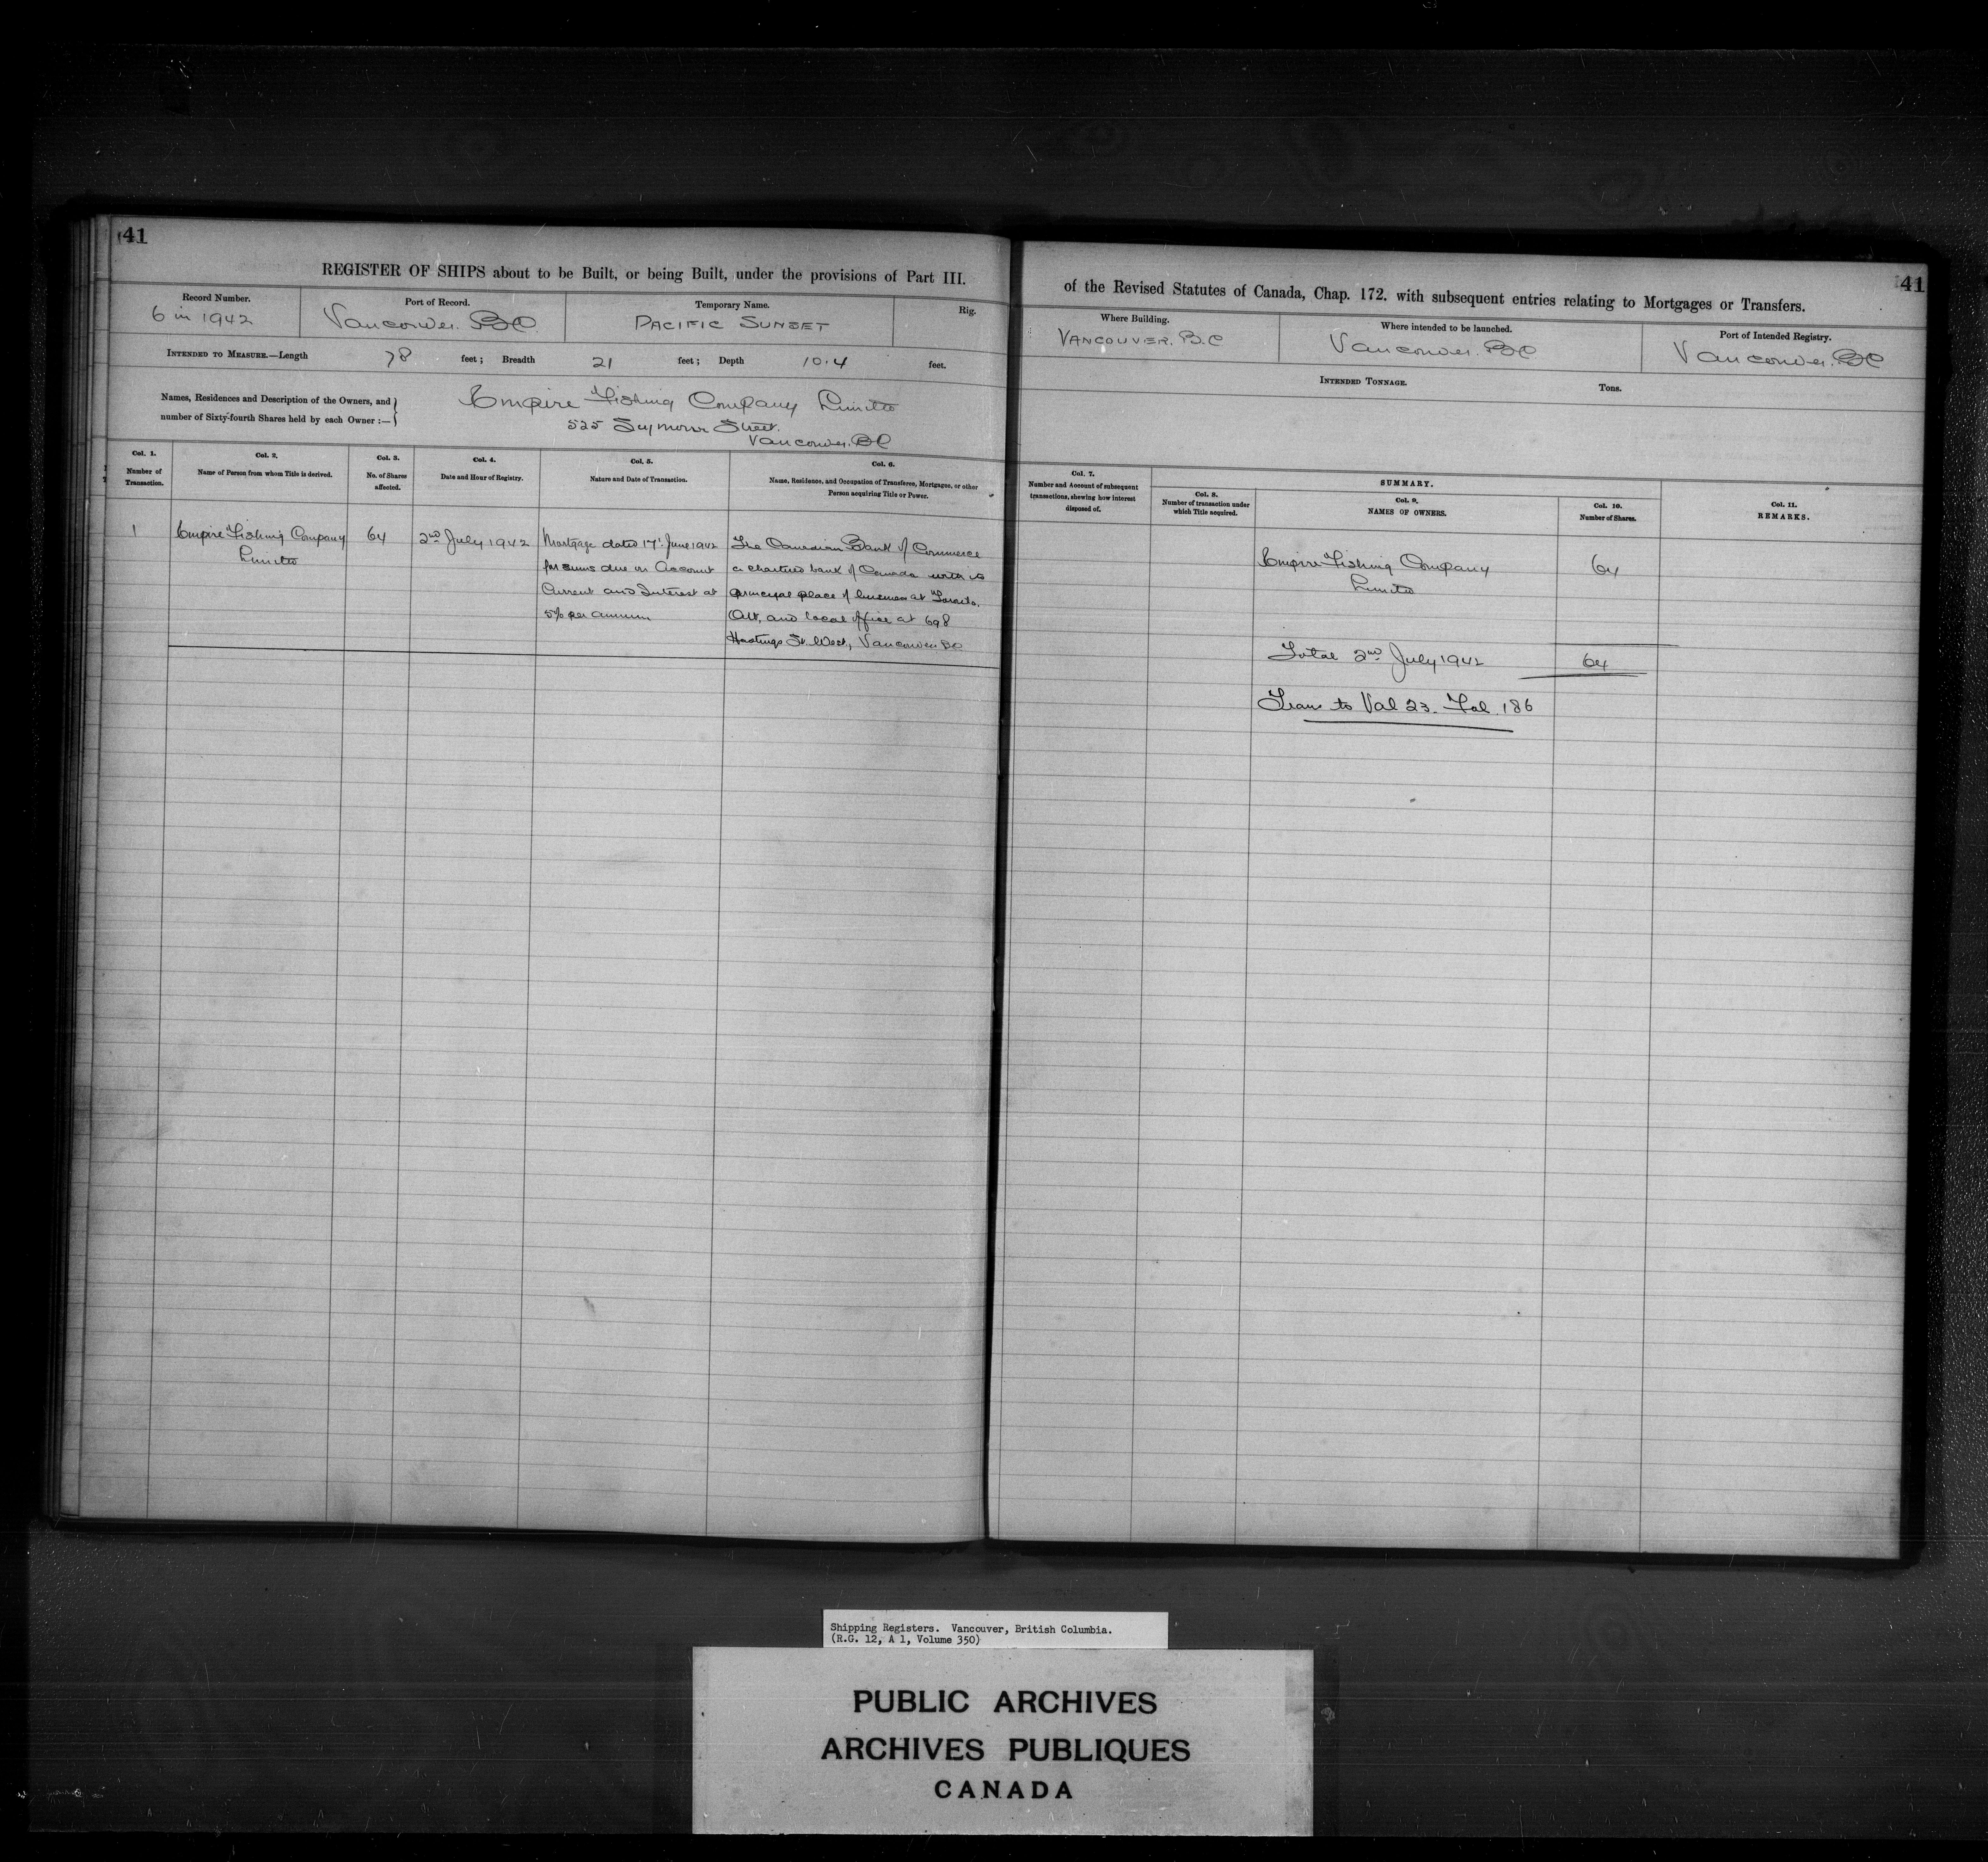 41
REGISTER OF SHIPS about to be Built, or being Built, under the provisions of Part III.
Record Number.
6 in 1942
Port of Record.
Vancouver. BC
Temporary Name.
PACIFIC SUNSET
Rig.
INTENDED TO MEASURE.—Length 78 feet; Breadth 21 feet; Depth 10.4 feet.
Names, Residences and Description of the Owners, and
number of Sixty-fourth Shares held by each Owner :—
Empire Fishing Company Limited
525 Seymour Street.
Vancouver. BC
Col. 1.
Number of
Transaction.
Col. 2.
Name of Person from whom Title is derived.
Col. 3.
No. of Shares
affected.
Col. 4.
Date and Hour of Registry.
Col. 5.
Nature and Date of Transaction.
Col. 6.
Name, Residence, and Occupation of Transferee, Mortgagee, or other
Person acquiring Title or Power.
1
Empire Fishing Company
Limited
64
2nd July 1942
Mortgage dated 17th June 1942
for sums due on Account
Current and Interest at
5% per annum
The Canadian Bank of Commerce
a chartered bank of Canada with its
principal place of business at Toronto.
Ont, and local office at 698
Hastings St. West, Vancouver BC
41
of the Revised Statutes of Canada, Chap. 172. with subsequent entries relating to Mortgages or Transfers.
Where Building.
VANCOUVER. B.C
Where intended to be launched.
Vancouver. BC
Port of Intended Registry.
Vancouver. BC
INTENDED TONNAGE. Tons.
Col. 7.
Number and Account of subsequent
transactions, shewing how interest
disposed of.
SUMMARY.
Col. 8.
Number of transaction under
which Title acquired.
Col. 9.
NAMES OF OWNERS.
Col. 10.
Number of Shares.
Col. 11.
REMARKS.
Empire Fishing Company
Limited
64
Total 2nd July 1942 64
Trans to Vol 23. Fol. 186
Shipping Registers. Vancouver, British Columbia.
(R.G. 12, A 1, Volume 350)
PUBLIC ARCHIVES
ARCHIVES PUBLIQUES
CANADA